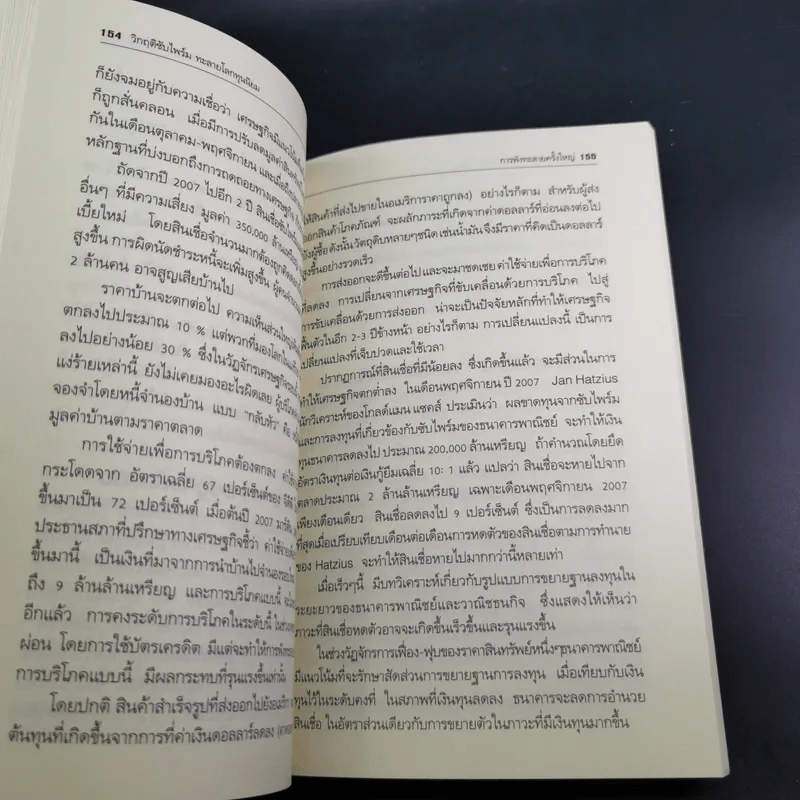 154 วิกฤติซับไพร์ม ทะลายโลกทุนนิยม
ก็ยังจมอยู่กับความเชื่อว่า เศรษฐกิจมีแนวโน้ม
ก็ถูกสั่นคลอน เมื่อมีการปรับลดมูลค่าสินทรัพย์
กันในเดือนตุลาคม-พฤศจิกายน และเมื่อถึง
หลักฐานที่บ่งบอกถึงการถดถอยทางเศรษฐกิจ
ถัดจากปี 2007 ไปอีก 2 ปี สินเชื่อซับไพร์ม
อื่นๆ ที่มีความเสี่ยง มูลค่า 350,000 ล้านเหรียญ
เบี้ยใหม่ โดยสินเชื่อจำนวนมากต้องถูกคิดดอก
สูงขึ้น การผิดนัดชำระหนี้จะเพิ่มสูงขึ้น ผู้คน
2 ล้านคน อาจสูญเสียบ้านไป
ราคาบ้านจะตกต่อไป ความเห็นส่วนใหญ่
ตกลงไปประมาณ 10 % แต่พวกที่มองโลกใน
ลงไปอย่างน้อย 30 % ซึ่งในวัฏจักรเศรษฐกิจ
แง่ร้ายเหล่านี้ ยังไม่เคยมองอะไรผิดเลย ผู้บริโภค
จองจำโดยหนี้จำนองบ้าน แบบ "กลับหัว" คือ
มูลค่าบ้านตามราคาตลาด
การใช้จ่ายเพื่อการบริโภคต้องตกลง ค่าใช้
กระโดดจาก อัตราเฉลี่ย 67 เปอร์เซ็นต์ของ จีดีพี
ขึ้นมาเป็น 72 เปอร์เซ็นต์ เมื่อต้นปี 2007 มาร์ติน
ประธานสภาที่ปรึกษาทางเศรษฐกิจชี้ว่า ค่าใช้จ่าย
ขึ้นมานี้ เป็นเงินที่มาจากการนำบ้านไปจำนอง
ถึง 9 ล้านล้านเหรียญ และการบริโภคแบบนี้
อีกแล้ว การคงระดับการบริโภคในระดับนี้
ผ่อน โดยการใช้บัตรเครดิต มีแต่จะทำให้การ
การบริโภคแบบนี้ มีผลกระทบที่รุนแรงขึ้นเท่านั้น
โดยปกติ สินค้าสำเร็จรูปที่ส่งออกไปยังอเมริกา
ต้นทุนที่เกิดขึ้นจากการที่ค่าเงินดอลลาร์ลดลง
การพังทะลายครั้งใหญ่ 155
ให้สินค้าที่ส่งไปขายในอเมริการาคาถูกลง) อย่างไรก็ตาม สำหรับผู้ส่ง
ออกสินค้าโภคภัณฑ์ จะผลักภาระที่เกิดจากค่าดอลลาร์ที่อ่อนลงต่อไป
ยังผู้ซื้อ ดังนั้น วัตถุดิบหลายๆชนิด เช่นน้ำมัน จึงมีราคาที่คิดเป็นดอลลาร์
สูงขึ้นอย่างรวดเร็ว
การส่งออกจะดีขึ้นต่อไป และจะมาชดเชย ค่าใช้จ่ายเพื่อการบริโภค
ที่ลดลง การเปลี่ยนจากเศรษฐกิจที่ขับเคลื่อนด้วยการบริโภค ไปสู่
การขับเคลื่อนด้วยการส่งออก น่าจะเป็นปัจจัยหลักที่ทำให้เศรษฐกิจ
ฟื้นตัวในอีก 2-3 ปีข้างหน้า อย่างไรก็ตาม การเปลี่ยนแปลงนี้ เป็นการ
เปลี่ยนแปลงที่เจ็บปวดและใช้เวลา
ปรากฏการณ์ที่สินเชื่อที่มีน้อยลง ซึ่งเกิดขึ้นแล้ว จะมีส่วนในการ
ทำให้เศรษฐกิจตกต่ำลง ในเดือนพฤศจิกายน ปี 2007 Jan Hatzius
นักวิเคราะห์ของโกลด์แมน แซคส์ ประเมินว่า ผลขาดทุนจากซับไพร์ม
และการลงทุนที่เกี่ยวข้องกับซับไพร์มของธนาคารพาณิชย์ จะทำให้เงิน
ทุนธนาคารลดลงไป ประมาณ 200,000 ล้านเหรียญ ถ้าคำนวณโดยยึด
อัตราเงินทุนต่อเงินกู้ยืมเฉลี่ย 10: 1 แล้ว แปลว่า สินเชื่อจะหายไปจาก
ตลาดประมาณ 2 ล้านล้านเหรียญ เฉพาะเดือนพฤศจิกายน 2007
เพียงเดือนเดียว สินเชื่อลดลงไป 9 เปอร์เซ็นต์ ซึ่งเป็นการลดลงมาก
ที่สุดเมื่อเปรียบเทียบเดือนต่อเดือนการหดตัวของสินเชื่อตามการทำนาย
ของ Hatzius จะทำให้สินเชื่อหายไปมากกว่านี้หลายเท่า
เมื่อเร็วๆนี้ มีบทวิเคราะห์เกี่ยวกับรูปแบบการขยายฐานลงทุนใน
ระยะยาวของธนาคารพาณิชย์และวาณิชธนกิจ ซึ่งแสดงให้เห็นว่า
ภาวะที่สินเชื่อหดตัวอาจจะเกิดขึ้นเร็วขึ้นและรุนแรงขึ้น
ในช่วงวัฏจักรการเฟื่อง-ฟุบของราคาสินทรัพย์หนึ่งๆธนาคารพาณิชย์
มีแนวโน้มที่จะรักษาสัดส่วนการขยายฐานการลงทุน เมื่อเทียบกับเงิน
ทุนไว้ในระดับคงที่ ในสภาพที่เงินทุนลดลง ธนาคารจะลดการอำนวย
สินเชื่อ ในอัตราส่วนเดียวกับการขยายตัวในภาวะที่มีเงินทุนมากขึ้น